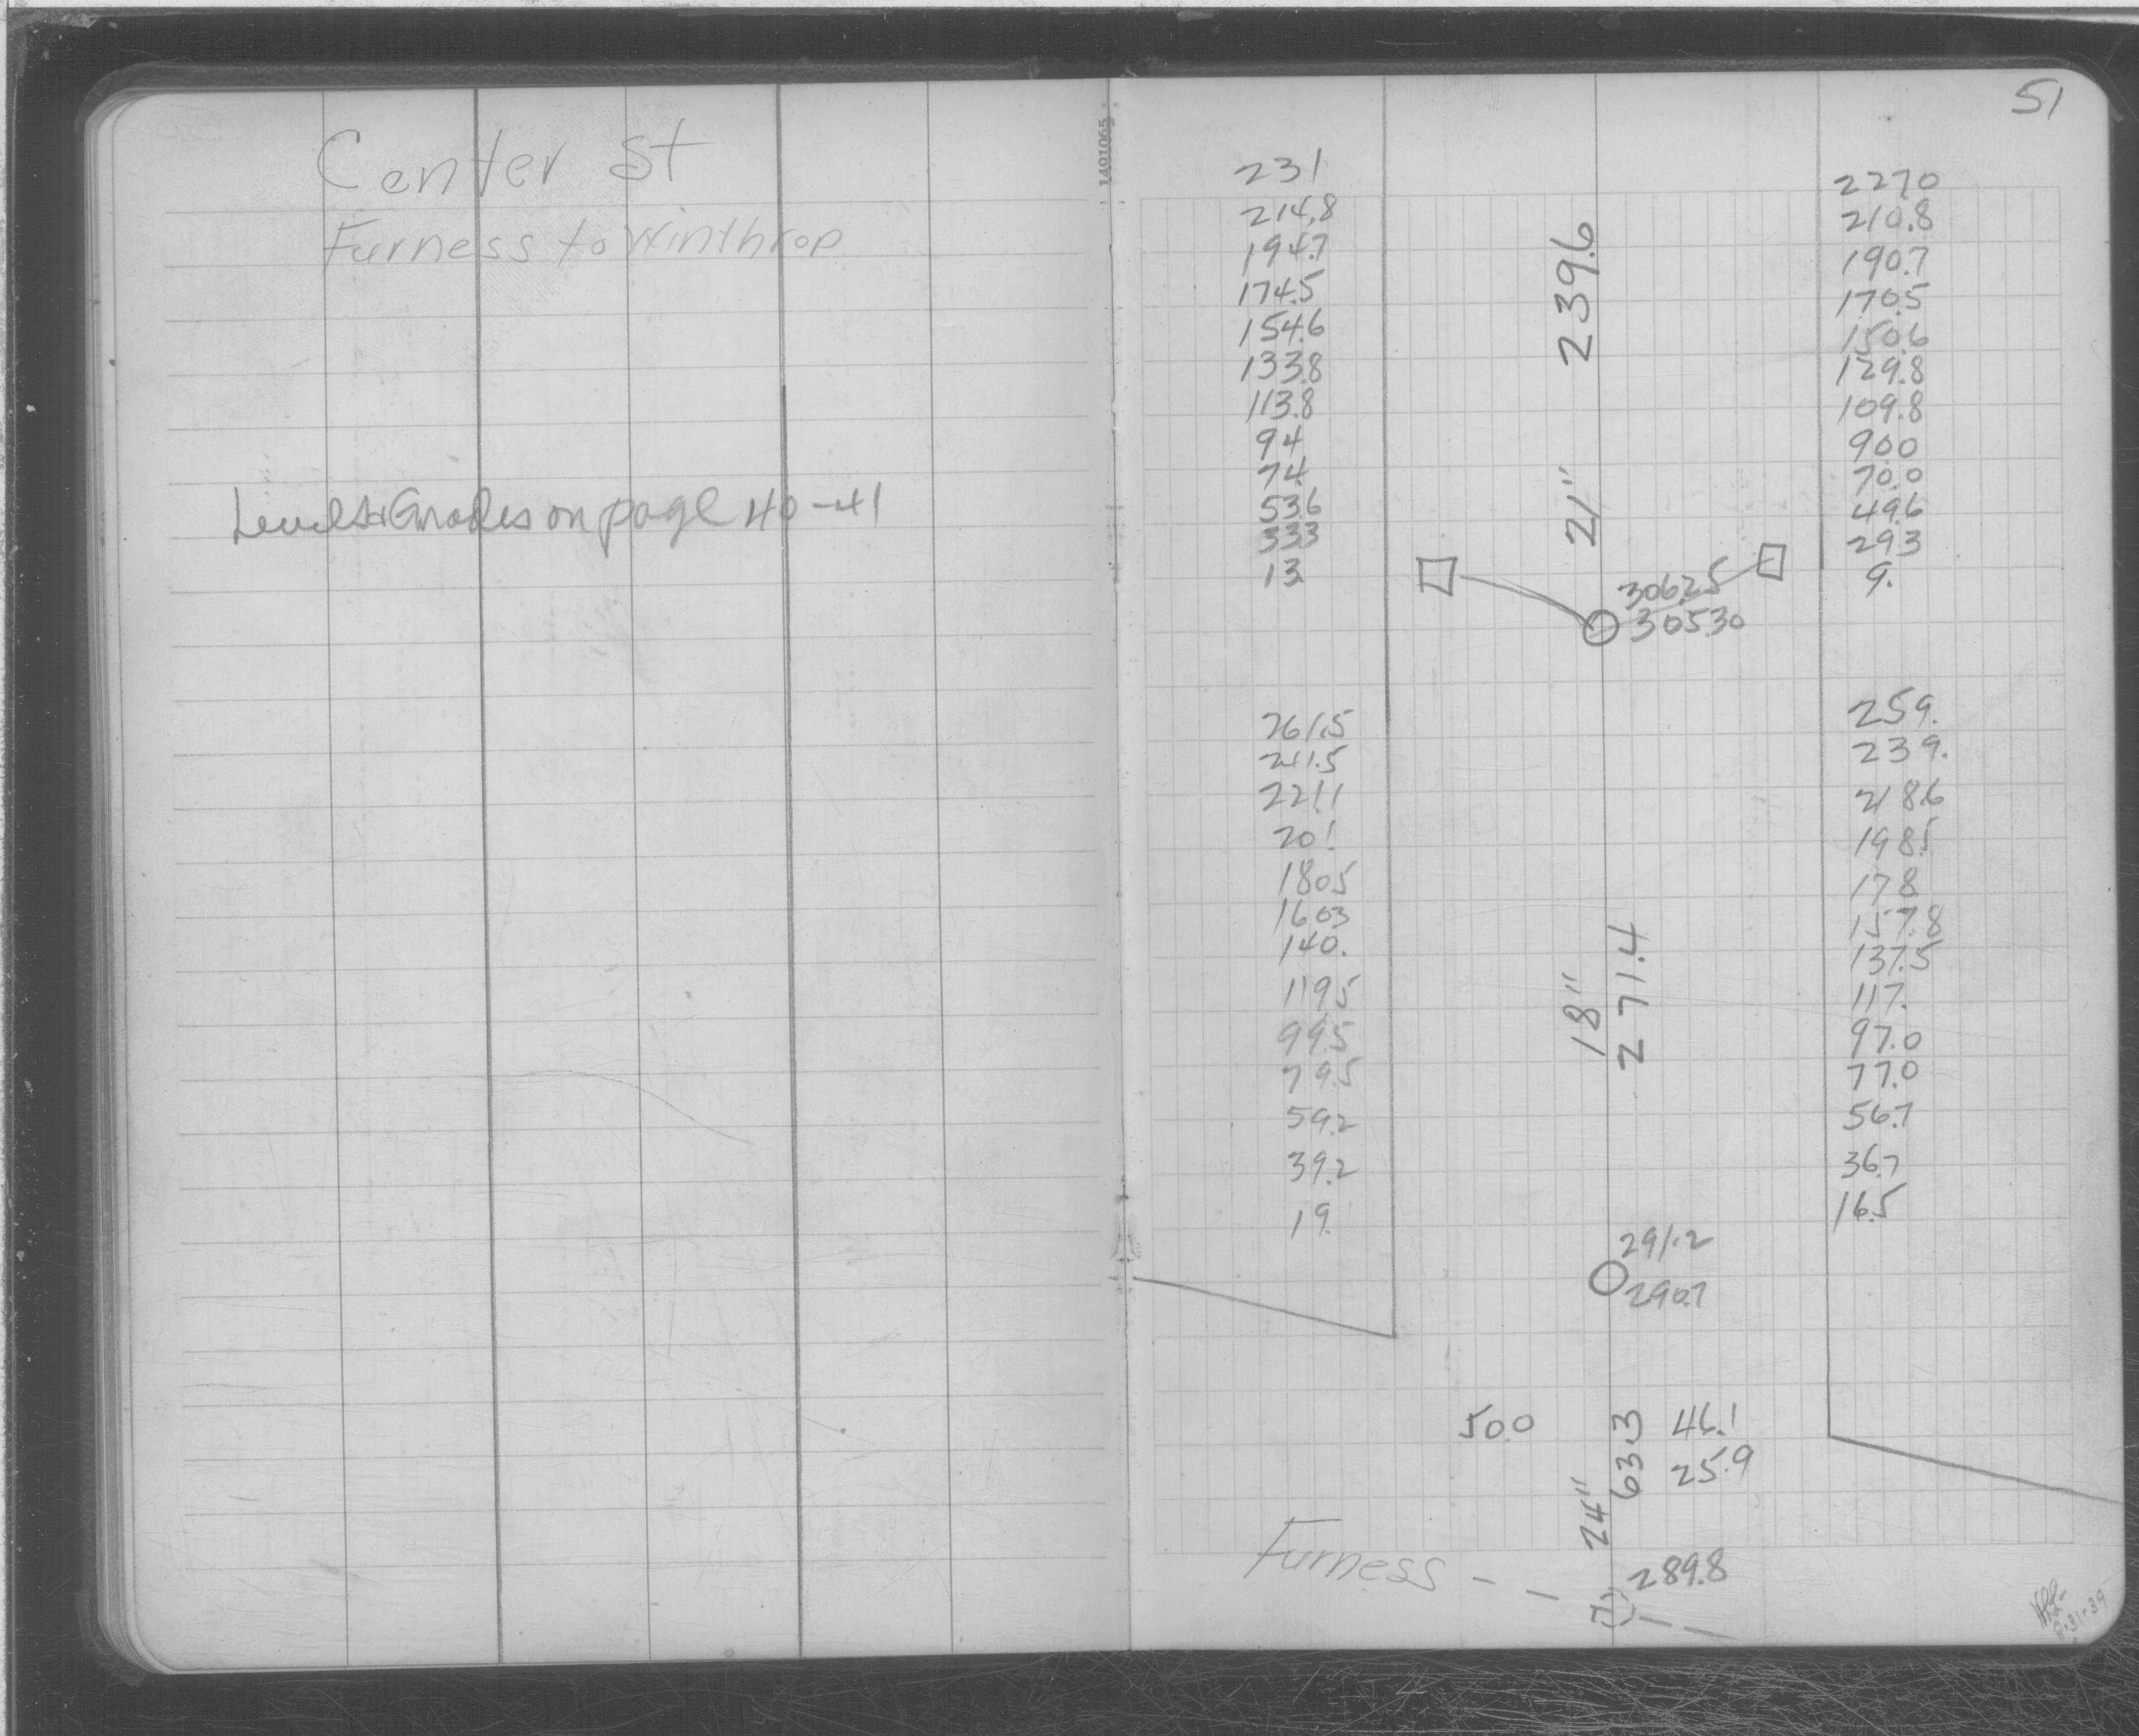 Center St
Furness to Winthrop
Levels & Grades on page 40-41
1401065
51
231
214.8
194.7
174.5
154.6
133.8
113.8
94
74
53.6
33.3
13
239.6
21"
227.0
210.8
190.7
170.5
150.6
129.8
109.8
90.0
70.0
49.6
29.3
9.
306.25
305.30
261.5
241.5
221.1
201
180.5
160.3
140.
119.5
99.5
79.5
59.2
39.2
19.
18"
271.4
259.
239.
218.6
198.5
178
157.8
137.5
117.
97.0
77.0
56.7
36.7
16.5
291.2
290.7
50.0
63.3
46.1
25.9
24"
Furness
289.8
8-31-39